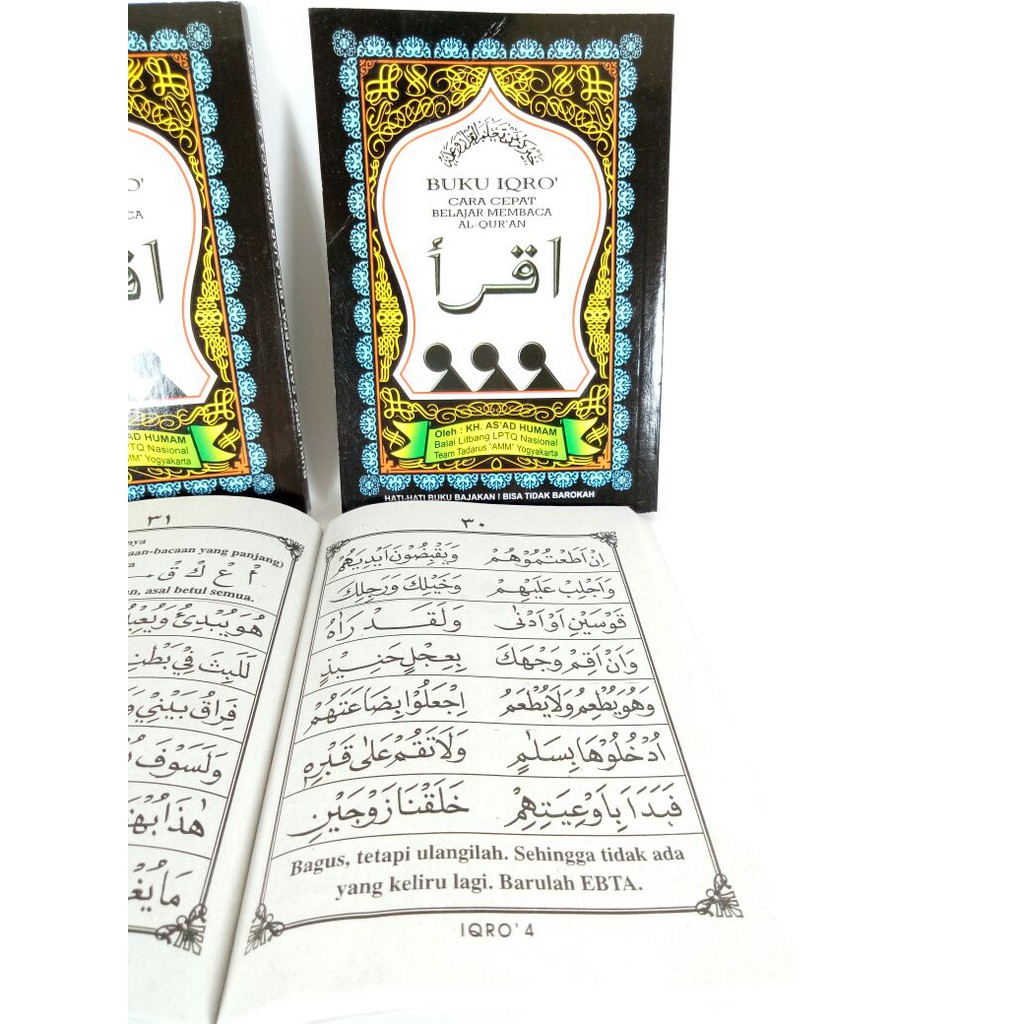 BUKU IQRO'
CARA CEPAT
BELAJAR MEMBACA
AL-QUR'AN
اقرأ
Oleh : KH. AS'AD HUMAM
Balai Litbang LPTQ Nasional
Team Tadarus "AMM" Yogyakarta
HATI-HATI BUKU BAJAKAN ! BISA TIDAK BAROKAH
AD HUMAM
TQ Nasional
Yogyakarta
٣٠
اِنْ اَطَعْتُمُوْهُمْ وَيَقْبِضُوْنَ اَيْدِيَهُمْ
وَاَجْلِبْ عَلَيْهِمْ وَخَيْلِكَ وَرَجِلِكَ
قَوْسَيْنِ اَوْ اَدْنٰى وَلَقَدْ رَاٰهُ
وَاَنْ اَقِمْ وَجْهَكَ بِعِجْلٍ حَنِيْذٍ
وَهُوَ يُطْعِمُ وَلَا يُطْعَمُ اِجْعَلُوْا بِضَاعَتَهُمْ
اُدْخُلُوْهَا بِسَلٰمٍ وَلَا تَقُمْ عَلٰى قَبْرِهٖ
فَبَدَاَ بِاَوْعِيَتِهِمْ خَلَقْنَا زَوْجَيْنِ
Bagus, tetapi ulangilah. Sehingga tidak ada
yang keliru lagi. Barulah EBTA.
IQRO' 4
٣١
nya
aan-bacaan yang panjang)
ع ك ق
n, asal betul semua.
هُوَ يُبْدِئُ
لَلَبِثَ فِيْ
فِرَاقُ بَيْنِيْ
وَلَسَوْفَ
هٰذَا